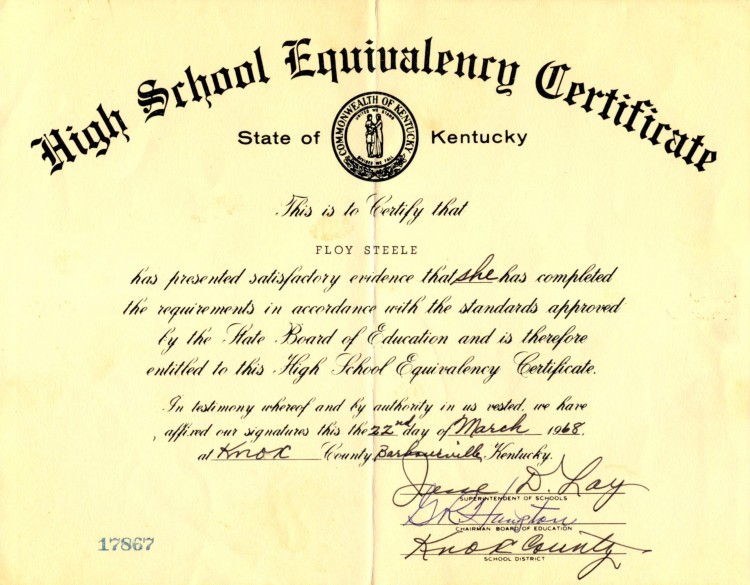 High School Equivalency Certificate
State of Kentucky
COMMONWEALTH OF KENTUCKY
UNITED WE STAND
DIVIDED WE FALL
This is to Certify that
FLOY STEELE
has presented satisfactory evidence that she has completed
the requirements in accordance with the standards approved
by the State Board of Education and is therefore
entitled to this High School Equivalency Certificate.
In testimony whereof and by authority in us vested, we have
affixed our signatures this the 22nd day of March 1968,
at Knox County Barbourville, Kentucky.
Jesse D. Lay
SUPERINTENDENT OF SCHOOLS
CHAIRMAN BOARD OF EDUCATION
Knox County
SCHOOL DISTRICT
17867